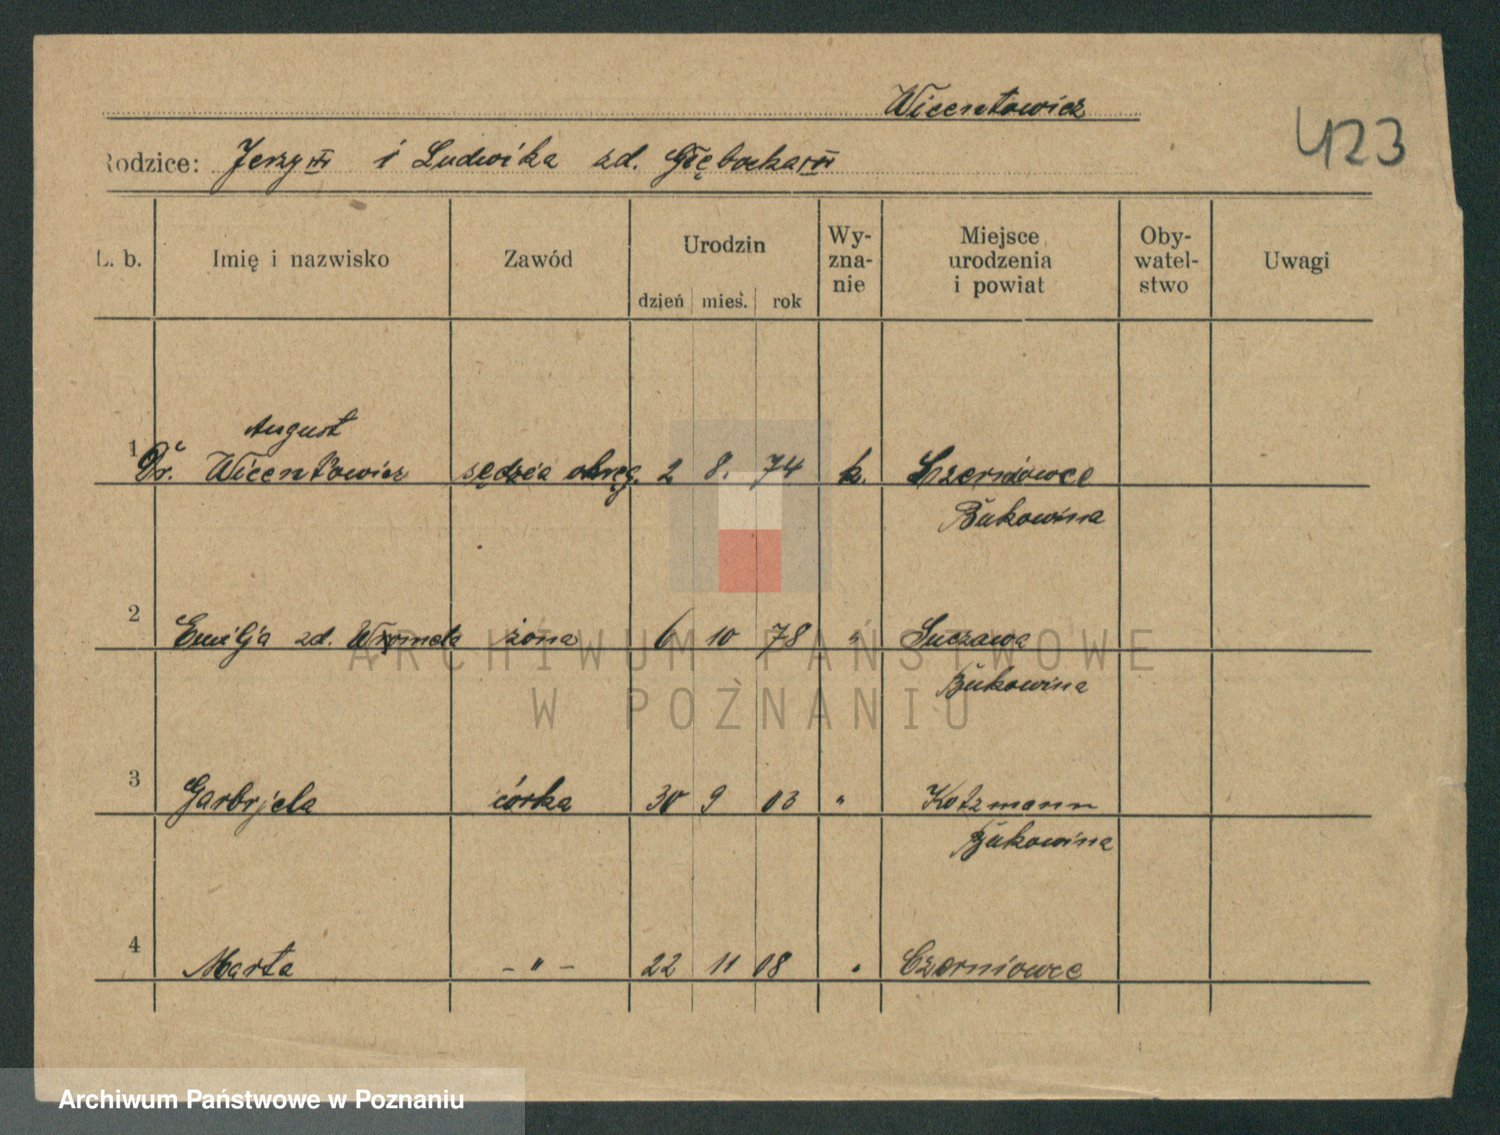 Wicentowicz
423
Rodzice: Jerzy i Ludwika zd. Głębocka
L. b. Imię i nazwisko Zawód Urodzin Wy-zna-nie Miejsce urodzenia i powiat Oby-watel-stwo Uwagi
dzień mieś. rok
August
1 Dr. Wicentowicz sędzia okręg. 2 8. 74 k. Czerniowce
Bukowina
2 Emilja zd. żona 6 10 78 " Suczawa
Bukowina
3 Garbrjela córka 30 9 03 " Kotzmann
Bukowina
4 Marta -"- 22 11 08 " Czerniowce
ARCHIWUM PAŃSTWOWE
W POZNANIU
Archiwum Państwowe w Poznaniu